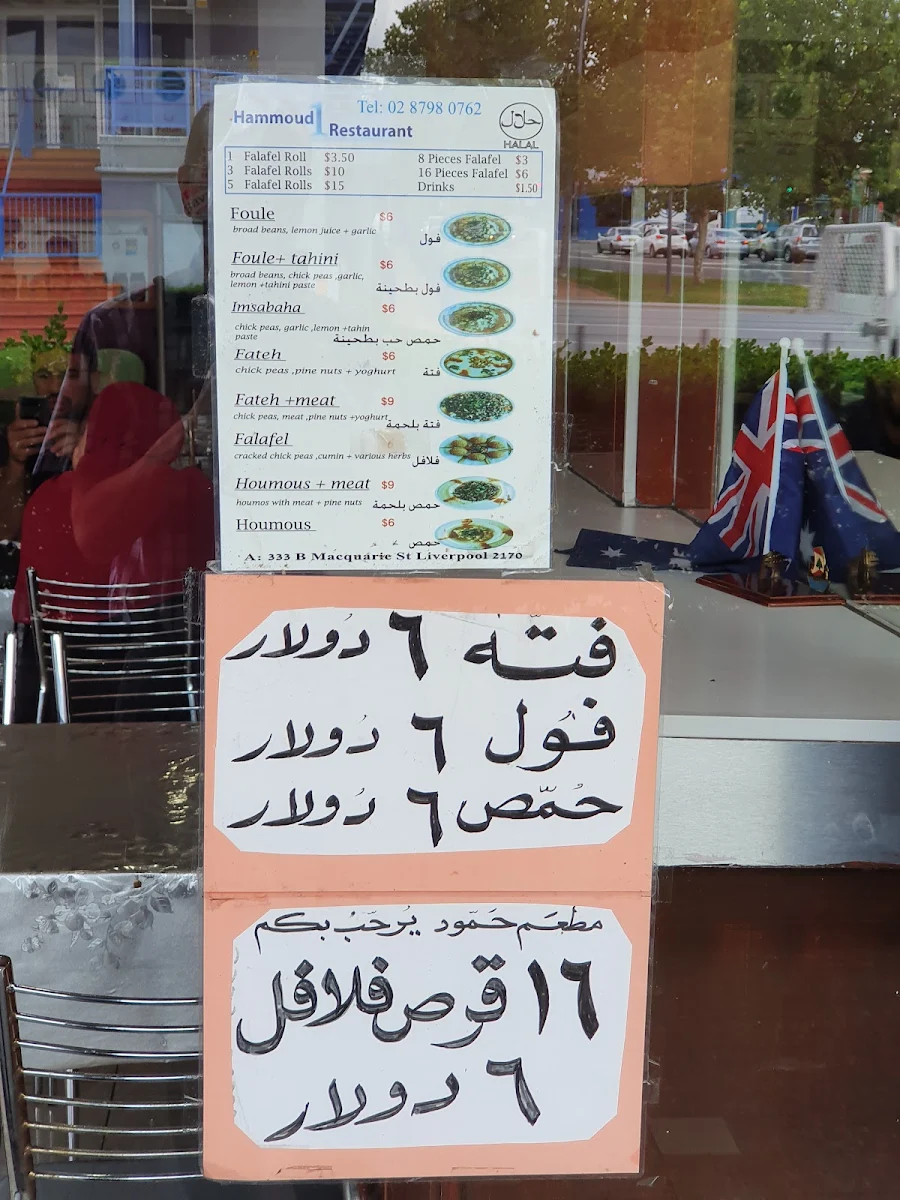 Tel: 02 8798 0762
Hammoud 1 Restaurant
حلال
HALAL
1 Falafel Roll $3.50 8 Pieces Falafel $3
3 Falafel Rolls $10 16 Pieces Falafel $6
5 Falafel Rolls $15 Drinks $1.50
Foule $6
broad beans, lemon juice + garlic
فول
Foule+ tahini $6
broad beans, chick peas ,garlic,
lemon +tahini paste
فول بطحينة
Imsabaha $6
chick peas, garlic ,lemon +tahin
paste
حمص حب بطحينة
Fateh $6
chick peas ,pine nuts + yoghurt
فتة
Fateh +meat $9
chick peas, meat ,pine nuts +yoghurt
فتة بلحمة
Falafel
cracked chick peas ,cumin + various herbs
فلافل
Houmous + meat $9
houmos with meat + pine nuts
حمص بلحمة
Houmous $6
حمص
A: 333 B Macquarie St Liverpool 2170
فتّه ٦ دُولار
فُول ٦ دُولار
حُمّص ٦ دُولار
مطعَم حَمّود يُرحّبُ بكم
١٦ قرص فلافل
٦ دولار